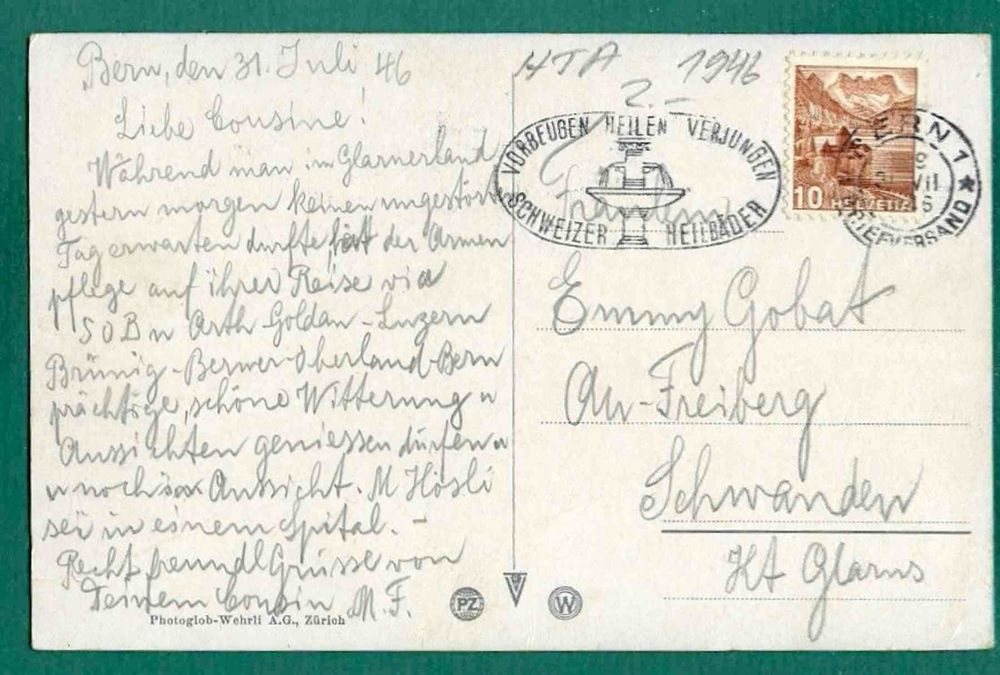 Bern, den 31. Juli 46
Liebe Cousine!
Während man im Glarnerland
gestern morgen keinen ungestört
Tag erwarten durfte, hat der Armen
pflege auf ihrer Reise via
SOB u Arth Goldau-Luzern
Brünig-Berner-Oberland-Bern
prächtige, schöne Witterung u
Aussichten geniessen dürfen u
u noch Aussicht. M Hösli
sei in einem Spital. -
Recht freundl Grüsse von
Deinem Cousin M. F.
Photoglob-Wehrli A.G., Zürich
PZ
W
HTA 1946
2.-
VORBEUGEN HEILEN VERJUNGEN
SCHWEIZER HEILBÄDER
10 HELVETIA
BERN 1
VII
BRIEFVERSAND
Fräulein
Emmy Gobat
Au-Freiberg
Schwanden
Kt Glarus